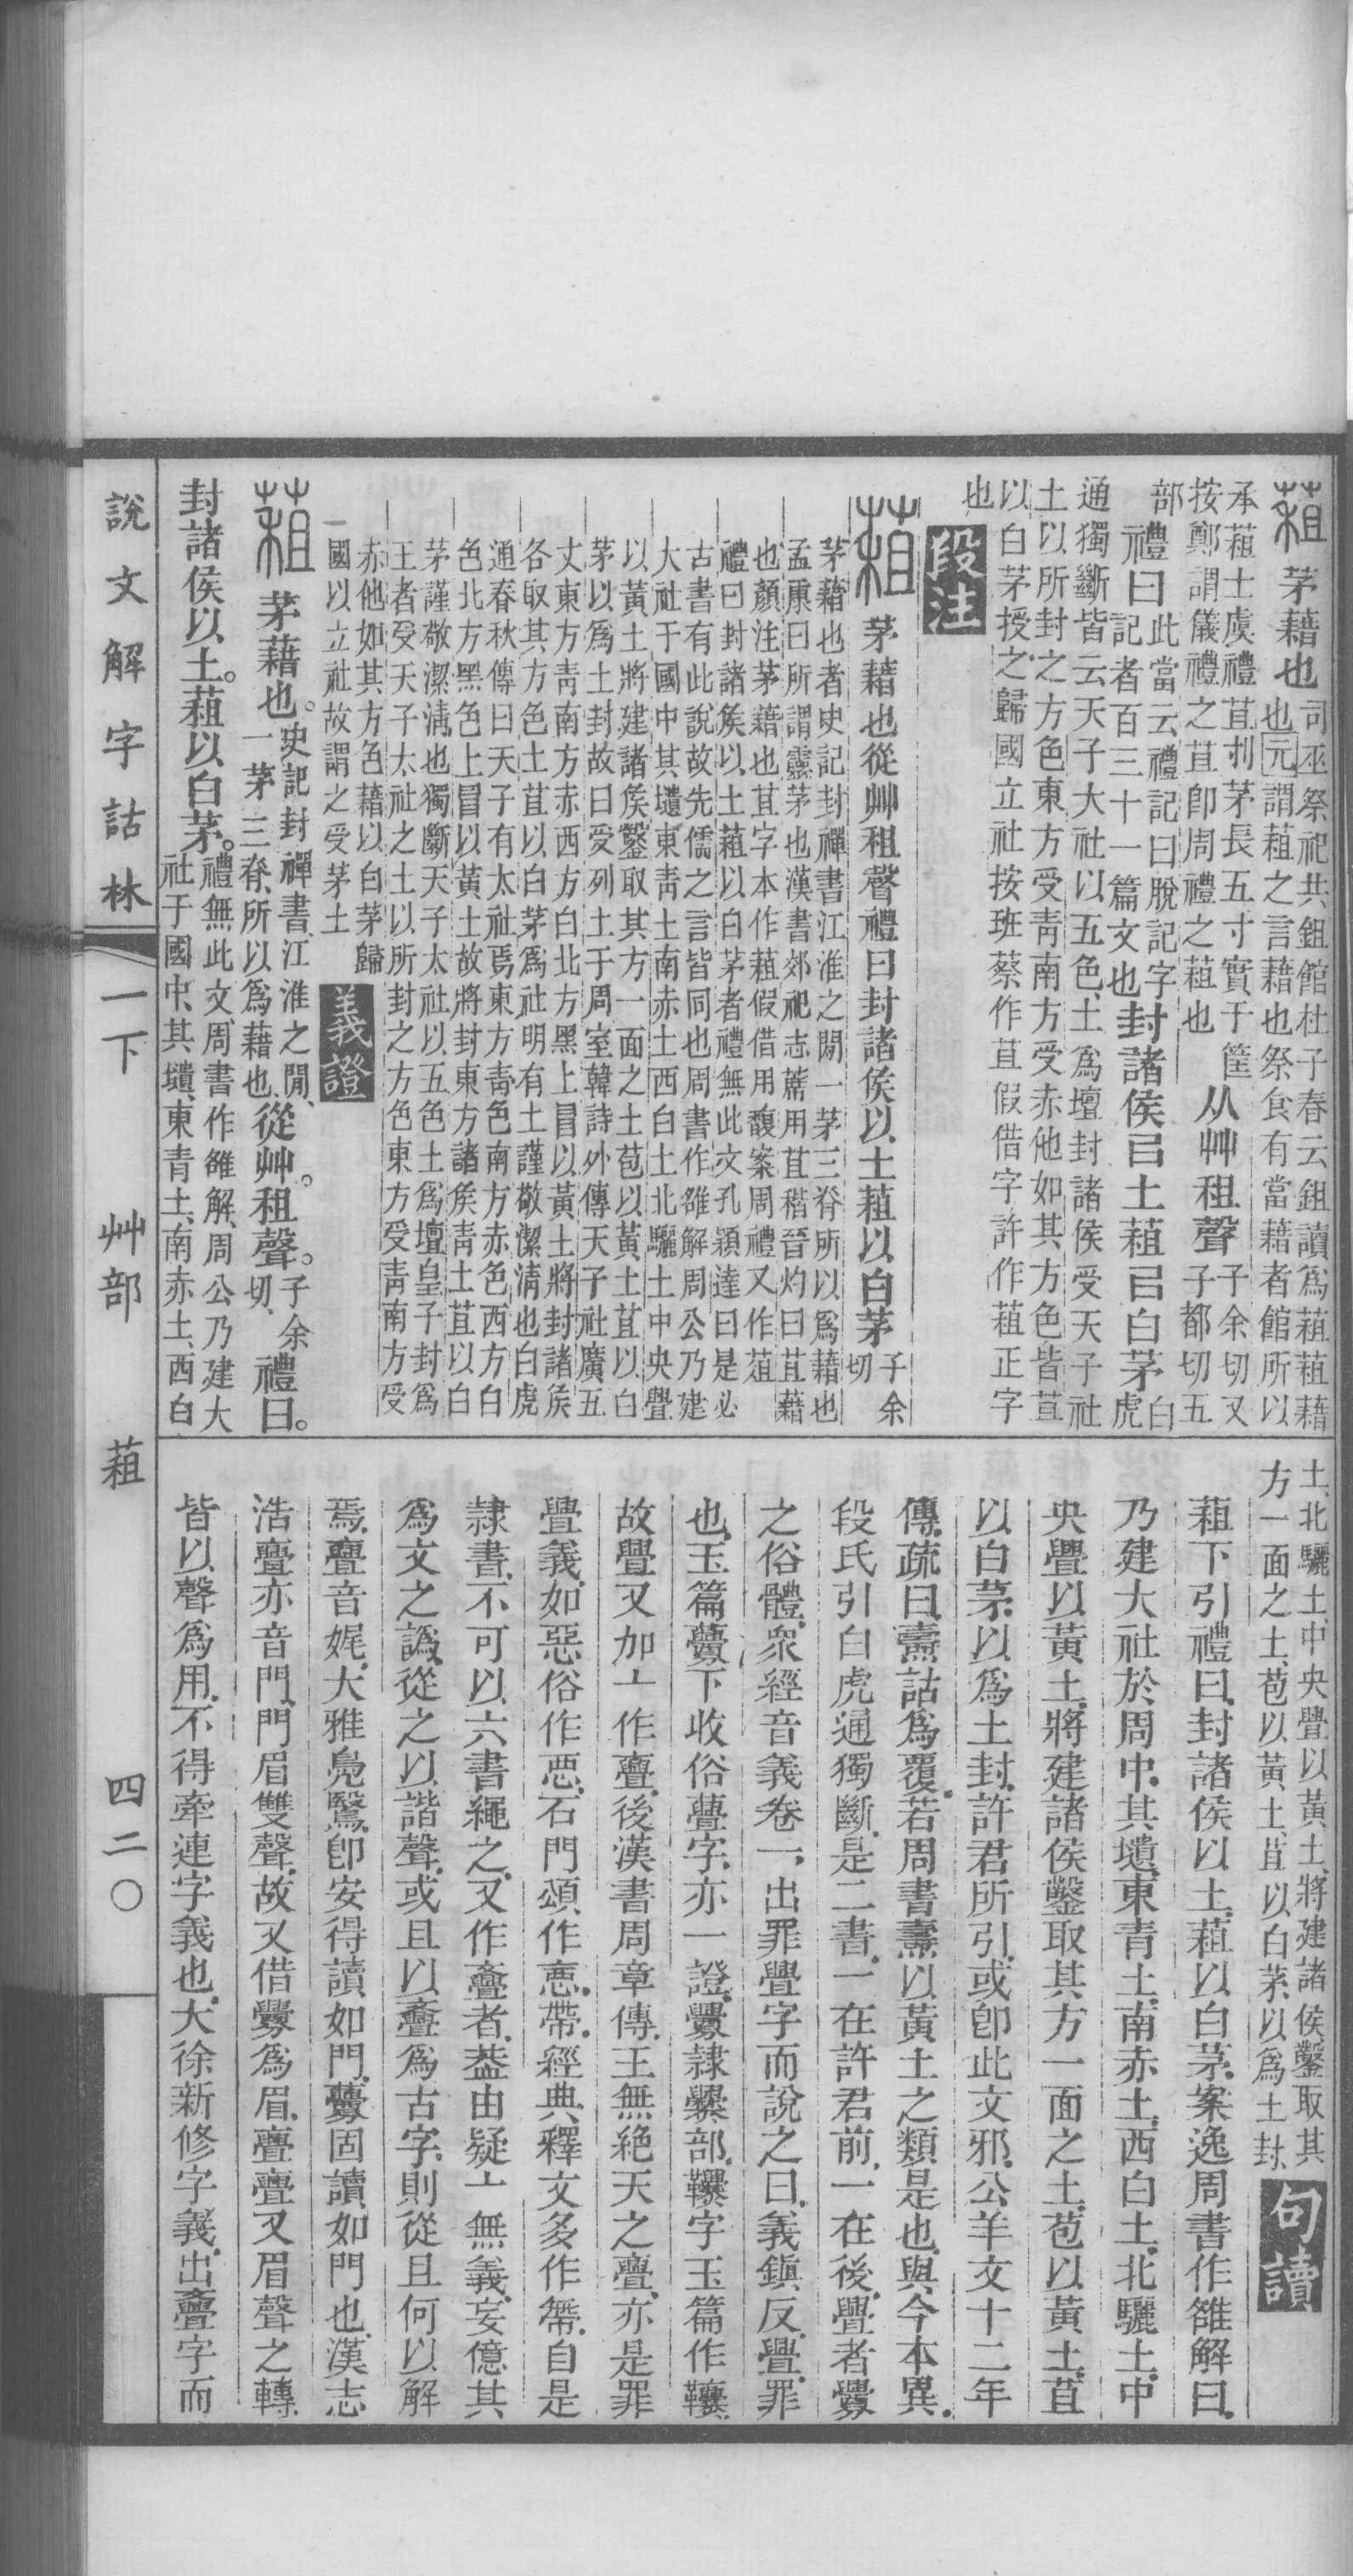 蒩茅藉也司巫祭祀共鉏館杜子春云鉏讀爲蒩蒩藉
也元謂蒩之言藉也祭食有當藉者館所以
承蒩士虞禮苴刌茅長五寸實于筐
按鄭謂儀禮之苴卽周禮之蒩也从艸租聲子余切又
子都切五
部禮曰此當云禮記曰脫記字
記者百三十一篇文也封諸侯㠯土蒩㠯白茅白
虎
通獨斷皆云天子大社以五色土爲壇封諸侯受天子社
土以所封之方色東方受青南方受赤他如其方色皆苴
以白茅授之歸國立社按班蔡作苴假借字許作蒩正字
也
段注
蒩茅藉也從艸租聲禮曰封諸侯以土蒩以白茅子余
切
茅藉也者史記封禪書江淮之閒一茅三脊所以爲藉也
孟康曰所謂靈茅也漢書郊祀志蓆用苴稭晉灼曰苴藉
也顏注茅藉也苴字本作蒩假借用馥案周禮又作葅
禮曰封諸矦以土蒩以白茅者禮無此文孔穎達曰是必
古書有此說故先儒之言皆同也周書作雒解周公乃建
大社于國中其壝東靑土南赤土西白土北驪土中央疊
以黃土將建諸矦鑿取其方一面之土苞以黃土苴以白
茅以爲土封故曰受列土于周室韓詩外傳天子社廣五
丈東方靑南方赤西方白北方黑上冒以黃土將封諸矦
各取其方色土苴以白茅爲社明有土謹敬潔淸也白虎
通春秋傳曰天子有太社焉東方靑色南方赤色西方白
色北方黑色上冒以黃土故將封東方諸矦靑土苴以白
茅謹敬潔淸也獨斷天子太社以五色土爲壇皇子封爲
王者受天子太社之土以所封之方色東方受靑南方受
赤他如其方色藉以白茅歸
國以立社故謂之受茅土
義證
蒩茅藉也。史記封禪書江淮之閒、
一茅三脊、所以爲藉也、從艸。租聲。子余
切、禮曰。
封諸侯以土。蒩以白茅。禮無此文、周書作雒解、周公乃建大
社于國中、其壝、東青土、南赤土、西白
土、北驪土、中央疊以黃土、將建諸侯、鑿取其
方一面之土、苞以黃土、苴以白茅、以爲土封、
句讀
蒩下引禮曰、封諸侯以土、蒩以白茅、案逸周書作雒解曰、
乃建大社於周中、其壝、東青土、南赤土、西白土、北驪土、中
央疊以黃土、將建諸侯、鑿取其方一面之土、苞以黃土、苴
以白茅、以爲土封、許君所引、或卽此文邪、公羊文十二年
傳、疏曰、燾詁爲覆、若周書燾以黃土之類是也、與今本異、
段氏引白虎通獨斷、是二書、一在許君前、一在後、疊者釁
之俗體、衆經音義卷一、出罪疊字而說之曰、義鎭反、疊、罪
也、玉篇虋下收俗蘴字、亦一證、釁隸爨部、
字玉篇作
故疊又加亠作亹、後漢書周章傳、王無絶天之亹、亦是罪
疊義、如惡俗作悪、石門頌作
帶、經典釋文多作
自是
隸書、不可以六書繩之、又作亹者、葢由疑亠無義、妄億其
爲文之譌、從之以諧聲、或且以亹爲古字、則從且何以解
焉、亹音娓、大雅鳧鷖、卽安得讀如門、虋固讀如門也、漢志
浩亹亦音門、門眉雙聲、故又借釁爲眉、亹亹又眉聲之轉、
皆以聲爲用、不得牽連字義也、大徐新修字義、出亹字而
說文解字詁林
一下
艸部
蒩
四二〇